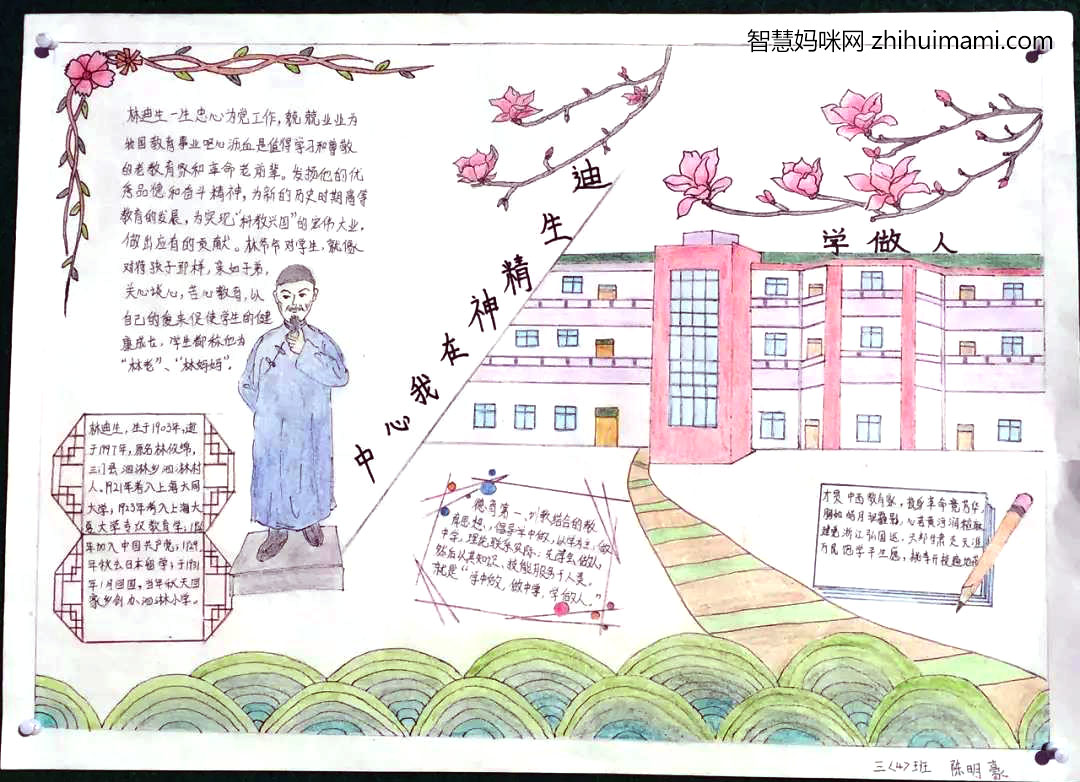 智慧妈咪网 zhihuimami.com
林迪生一生忠心为党工作，兢兢业业为
祖国教育事业呕心沥血是值得学习和尊敬
的老教育家和革命老前辈。发扬他的优
秀品德和奋斗精神，为新的历史时期高等
教育的发展，为实现"科教兴国"的宏伟大业，
做出应有的贡献。林爷爷对学生，就像
对待孩子那样，亲如子弟，
关心谈心，苦心教育，以
自己的爱来促使学生的健
康成长，学生都称他为
"林老"、"林妈妈"。
迪生精神在我心中
学做人
林迪生，生于1903年，逝
于1997年，原名林俊绵，
三门县泗淋乡泗淋村
人。1921年考入上海大同
大学，1923年考入上海大
夏大学专攻教育学；192
年加入中国共产党；1929
年秋去日本留学；于1931
年1月回国，当年秋天回
家乡创办泗淋小学。
德育第一、
教结合的教
育思想，倡导学中做，以学为主，做
中学，理论联系实际；先学会做人，
然后从其知识、技能，服务于人类。
就是"学中做，做中学，学做人。"
才贯中西教育家，
建党浙江弘国运，
三（4）班 陈明豪